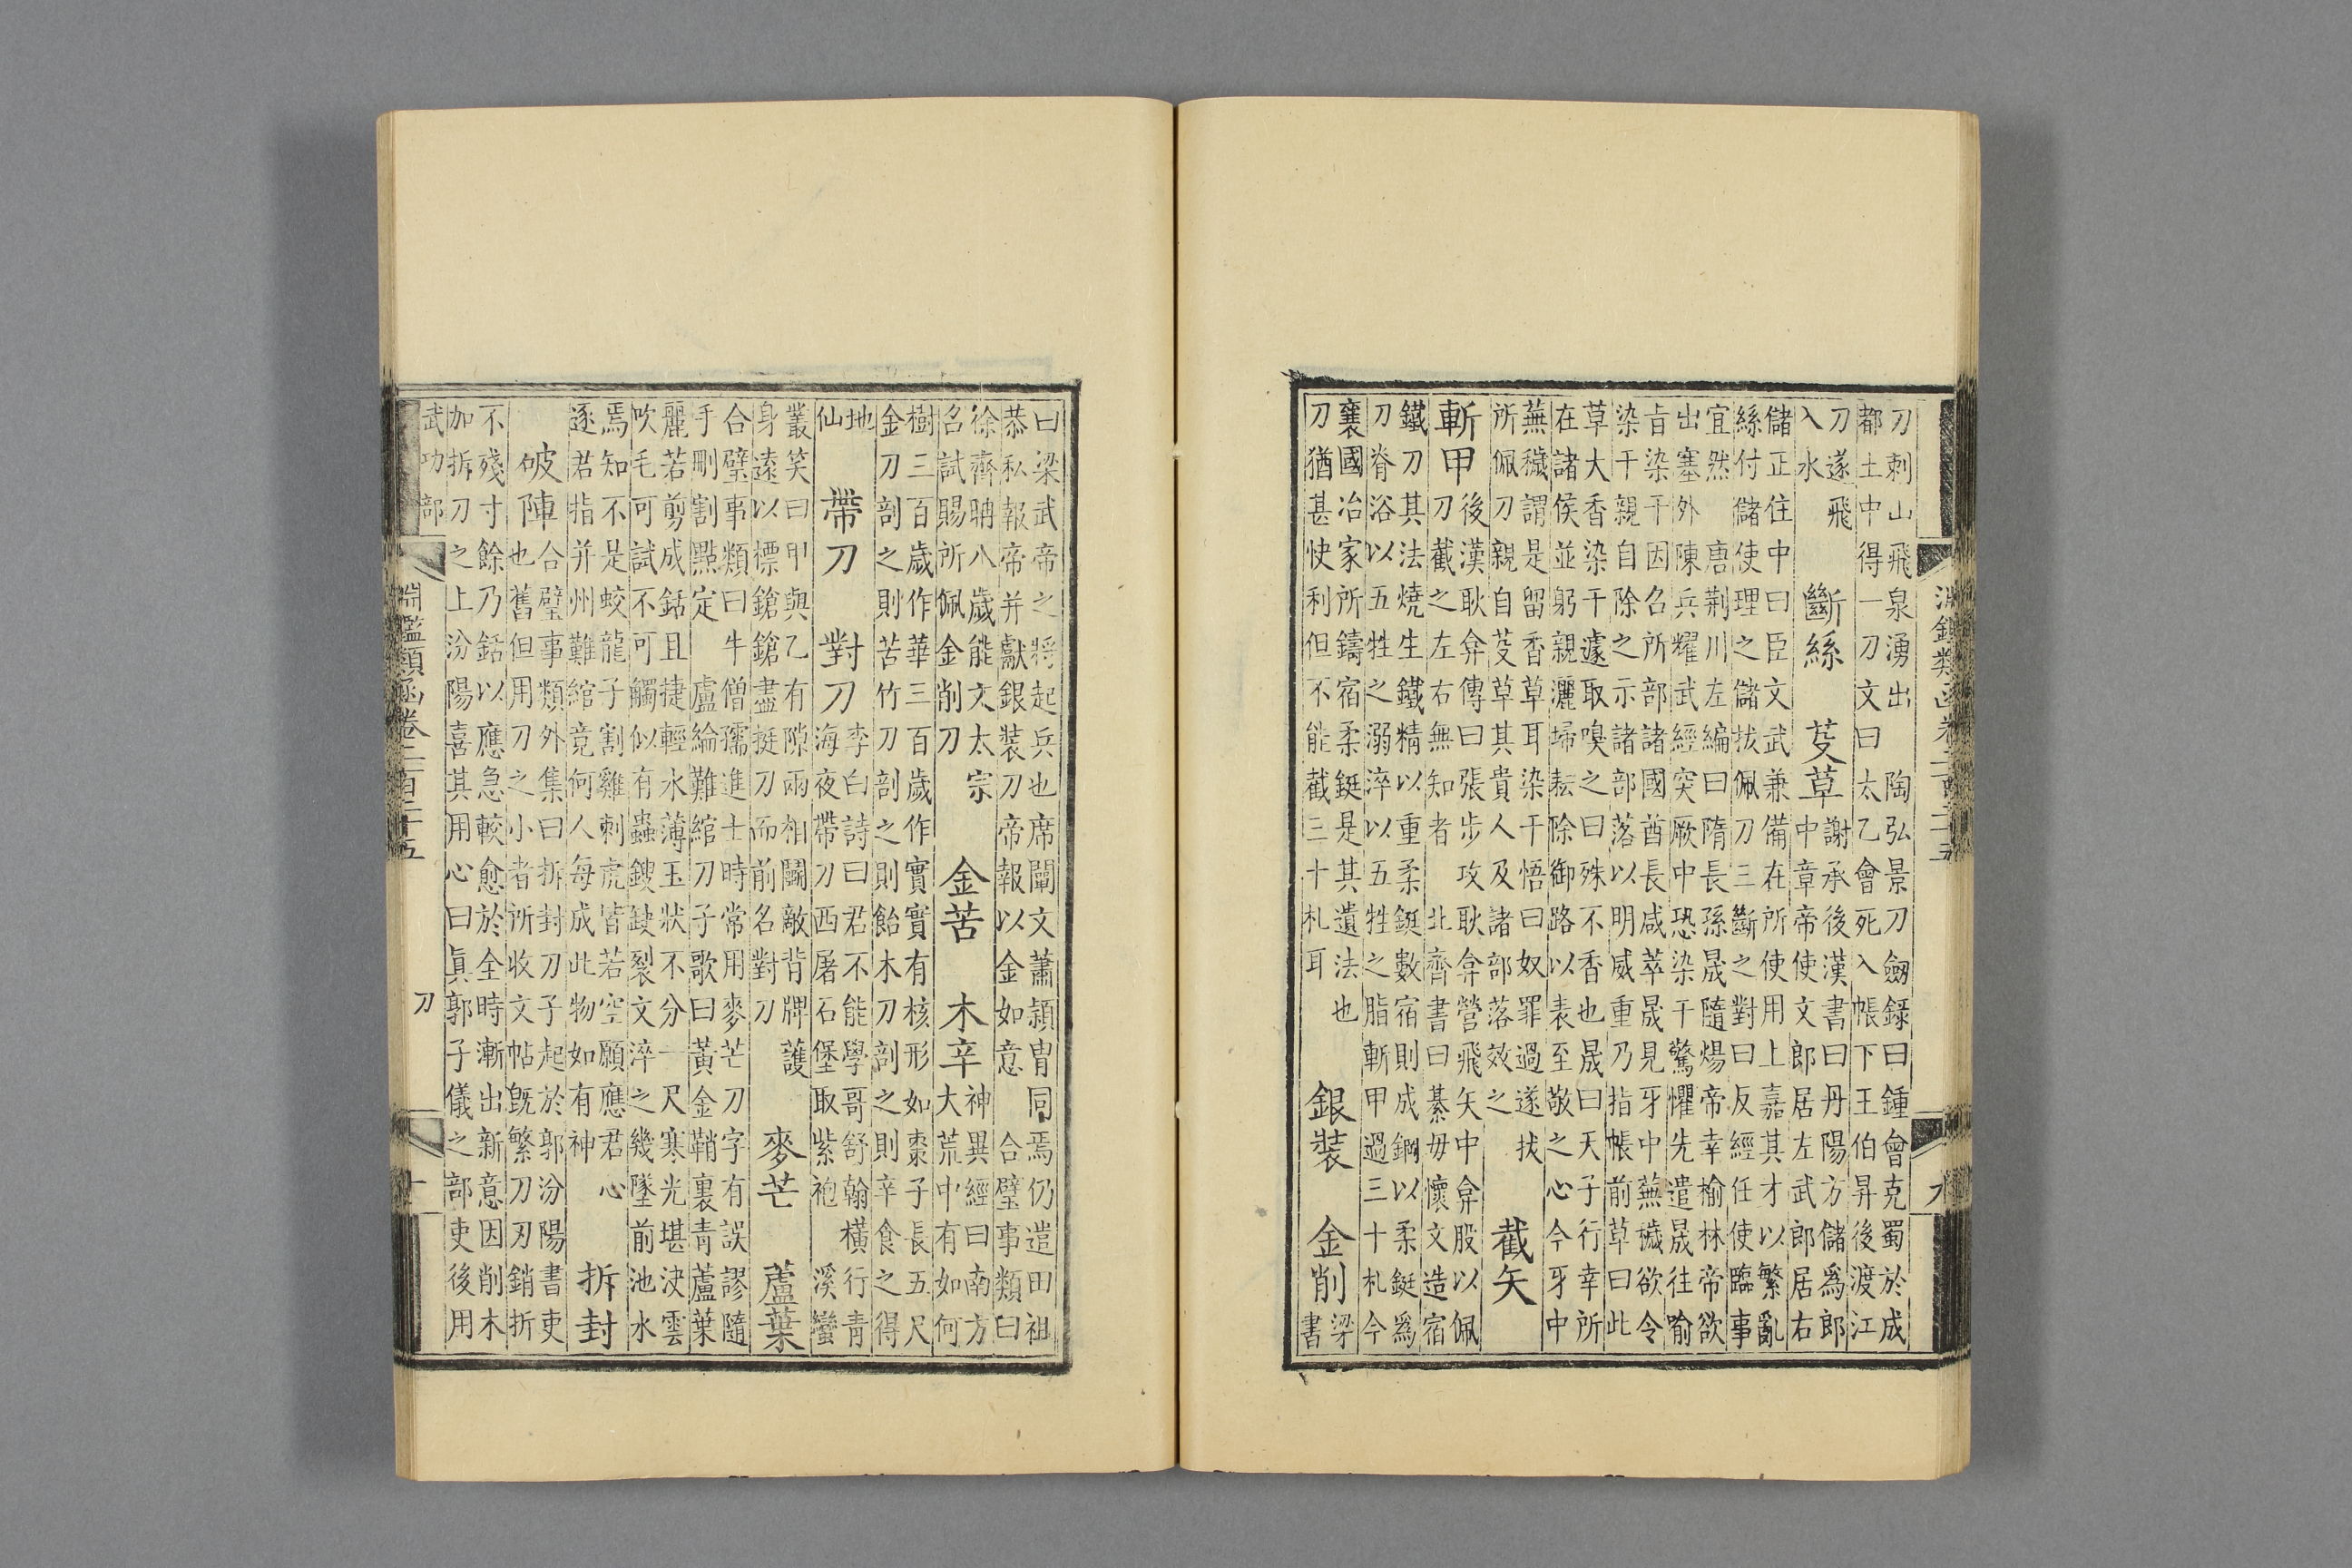 刀刺山飛泉湧出　陶弘景刀劔錄曰鍾會克蜀於成
都土中得一刀文曰太乙會死入帳下王伯昇後渡江
刀遂飛
入水
斷絲　芟草
謝承後漢書曰丹陽方儲爲郎
中章帝使文郎居左武郎居右
儲正住中曰臣文武兼備在所使用上嘉其才以繁亂
絲付儲使理之儲拔佩刀三斷之對曰反經任使臨事
宜然　唐荆川左編曰隋長孫晟隨煬帝幸榆林帝欲
出塞外陳兵耀武經突厥中恐染干驚懼先遣晟往喻
旨染干因名所部諸國酋長咸萃晟見牙中蕪穢欲令
染干親自除之示諸部落以明威重乃指帳前草曰此
草大香染干遽取嗅之曰殊不香也晟曰天子行幸所
在諸侯並躬親灑埽耘除御路以表至敬之心今牙中
蕪穢謂是留香草耳染干悟曰奴罪過遂拔
所佩刀親自芟草其貴人及諸部落效之
截矢
斬甲
後漢耿弇傳曰張步攻耿弇營飛矢中弇股以佩
刀截之左右無知者　北齊書曰綦毋懷文造宿
鐵刀其法燒生鐵精以重柔鋌數宿則成鋼以柔鋌爲
刀脊浴以五牲之溺淬以五牲之脂斬甲過三十札今
襄國冶家所鑄宿柔鋌是其遺法也
刀猶甚快利但不能截三十札耳
銀裝　金削
梁
書
曰梁武帝之將起兵也席闡文蕭穎冑同焉仍遣田祖
恭私報帝并獻銀裝刀帝報以金如意　合璧事類曰
徐齊聃八歲能文太宗
名試賜所佩金削刀
金苦　木辛
神異經曰南方
大荒中有如何
樹三百歲作華三百歲作實實有核形如棗子長五尺
金刀剖之則苦竹刀剖之則飴木刀剖之則辛食之得
地
仙
帶刀　對刀
李白詩曰君不能學哥舒翰橫行青
海夜帶刀西屠石堡取紫袍　溪蠻
叢笑曰甲與乙有隙兩相鬭敵背牌護
身遠以標鎗鎗盡挺刀而前名對刀
麥芒　蘆葉
合璧事類曰牛僧孺進士時常用麥芒刀字有誤謬隨
手刪割點定　盧綸難綰刀子歌曰黃金鞘裏青蘆葉
麗若剪成銛且捷輕水薄玉狀不分一尺寒光堪決雲
吹毛可試不可觸似有蟲鎪缺裂文淬之幾墜前池水
焉知不是蛟龍子割雞刺虎皆若空願應君心
逐君指并州難綰竟何人每成此物如有神
拆封
破陣
合璧事類外集曰拆封刀子起於郭汾陽書吏
也舊但用刀之小者所收文帖旣繁刀刃銷折
不殘寸餘乃銛以應急較愈於全時漸出新意因削木
加拆刀之上汾陽喜其用心曰眞郭子儀之部吏後用
武功部
淵鑑類函卷二百二十五
刀